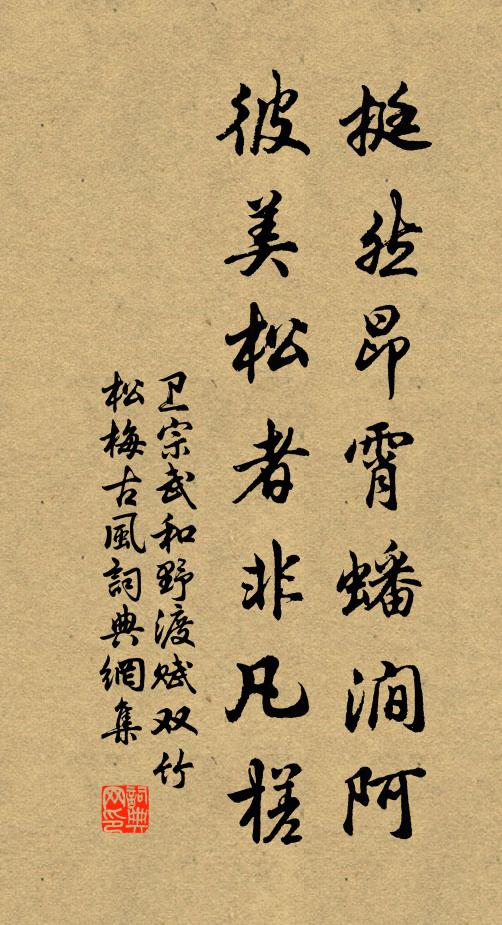 挺然昂霄蟠涧阿
彼美松者非凡槎
卫宗武和野渡赋双竹
松梅古風詞典網集
詞典网印